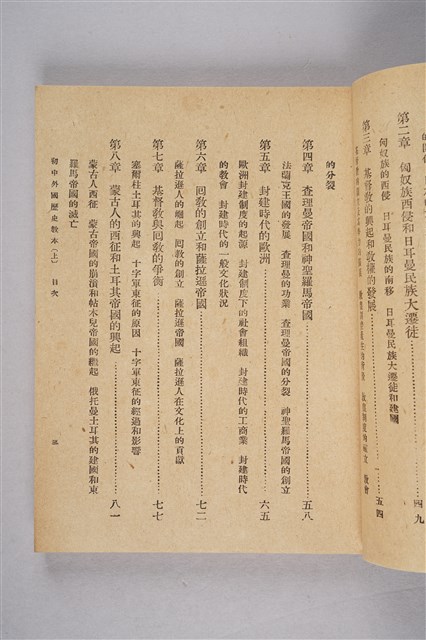 第二章　匈奴族西侵和日耳曼民族大遷徙……四九
匈奴族的西侵　日耳曼民族的南移　日耳曼民族大遷徙和建國
第三章　基督教的興起和教權的發展……五四
的分裂
第四章　查理曼帝國和神聖羅馬帝國……五八
法蘭克王國的發展　查理曼的功業　查理曼帝國的分裂　神聖羅馬帝國的創立
第五章　封建時代的歐洲……六五
歐洲封建制度的起源　封建制度下的社會組織　封建時代的工商業　封建時代
的教會　封建時代的一般文化狀況
第六章　回教的創立和薩拉遜帝國……七二
薩拉遜人的崛起　回教的創立　薩拉遜帝國　薩拉遜人在文化上的貢獻
第七章　基督教與回教的爭衡……七七
塞爾柱土耳其的興起　十字軍東征的原因　十字軍東征的經過和影響
第八章　蒙古人的西征和土耳其帝國的興起……八一
蒙古人西征　蒙古帝國的崩潰和帖木兒帝國的繼起　俄托曼土耳其的建國和東
羅馬帝國的滅亡
初中外國歷史教本（上）　目次
三